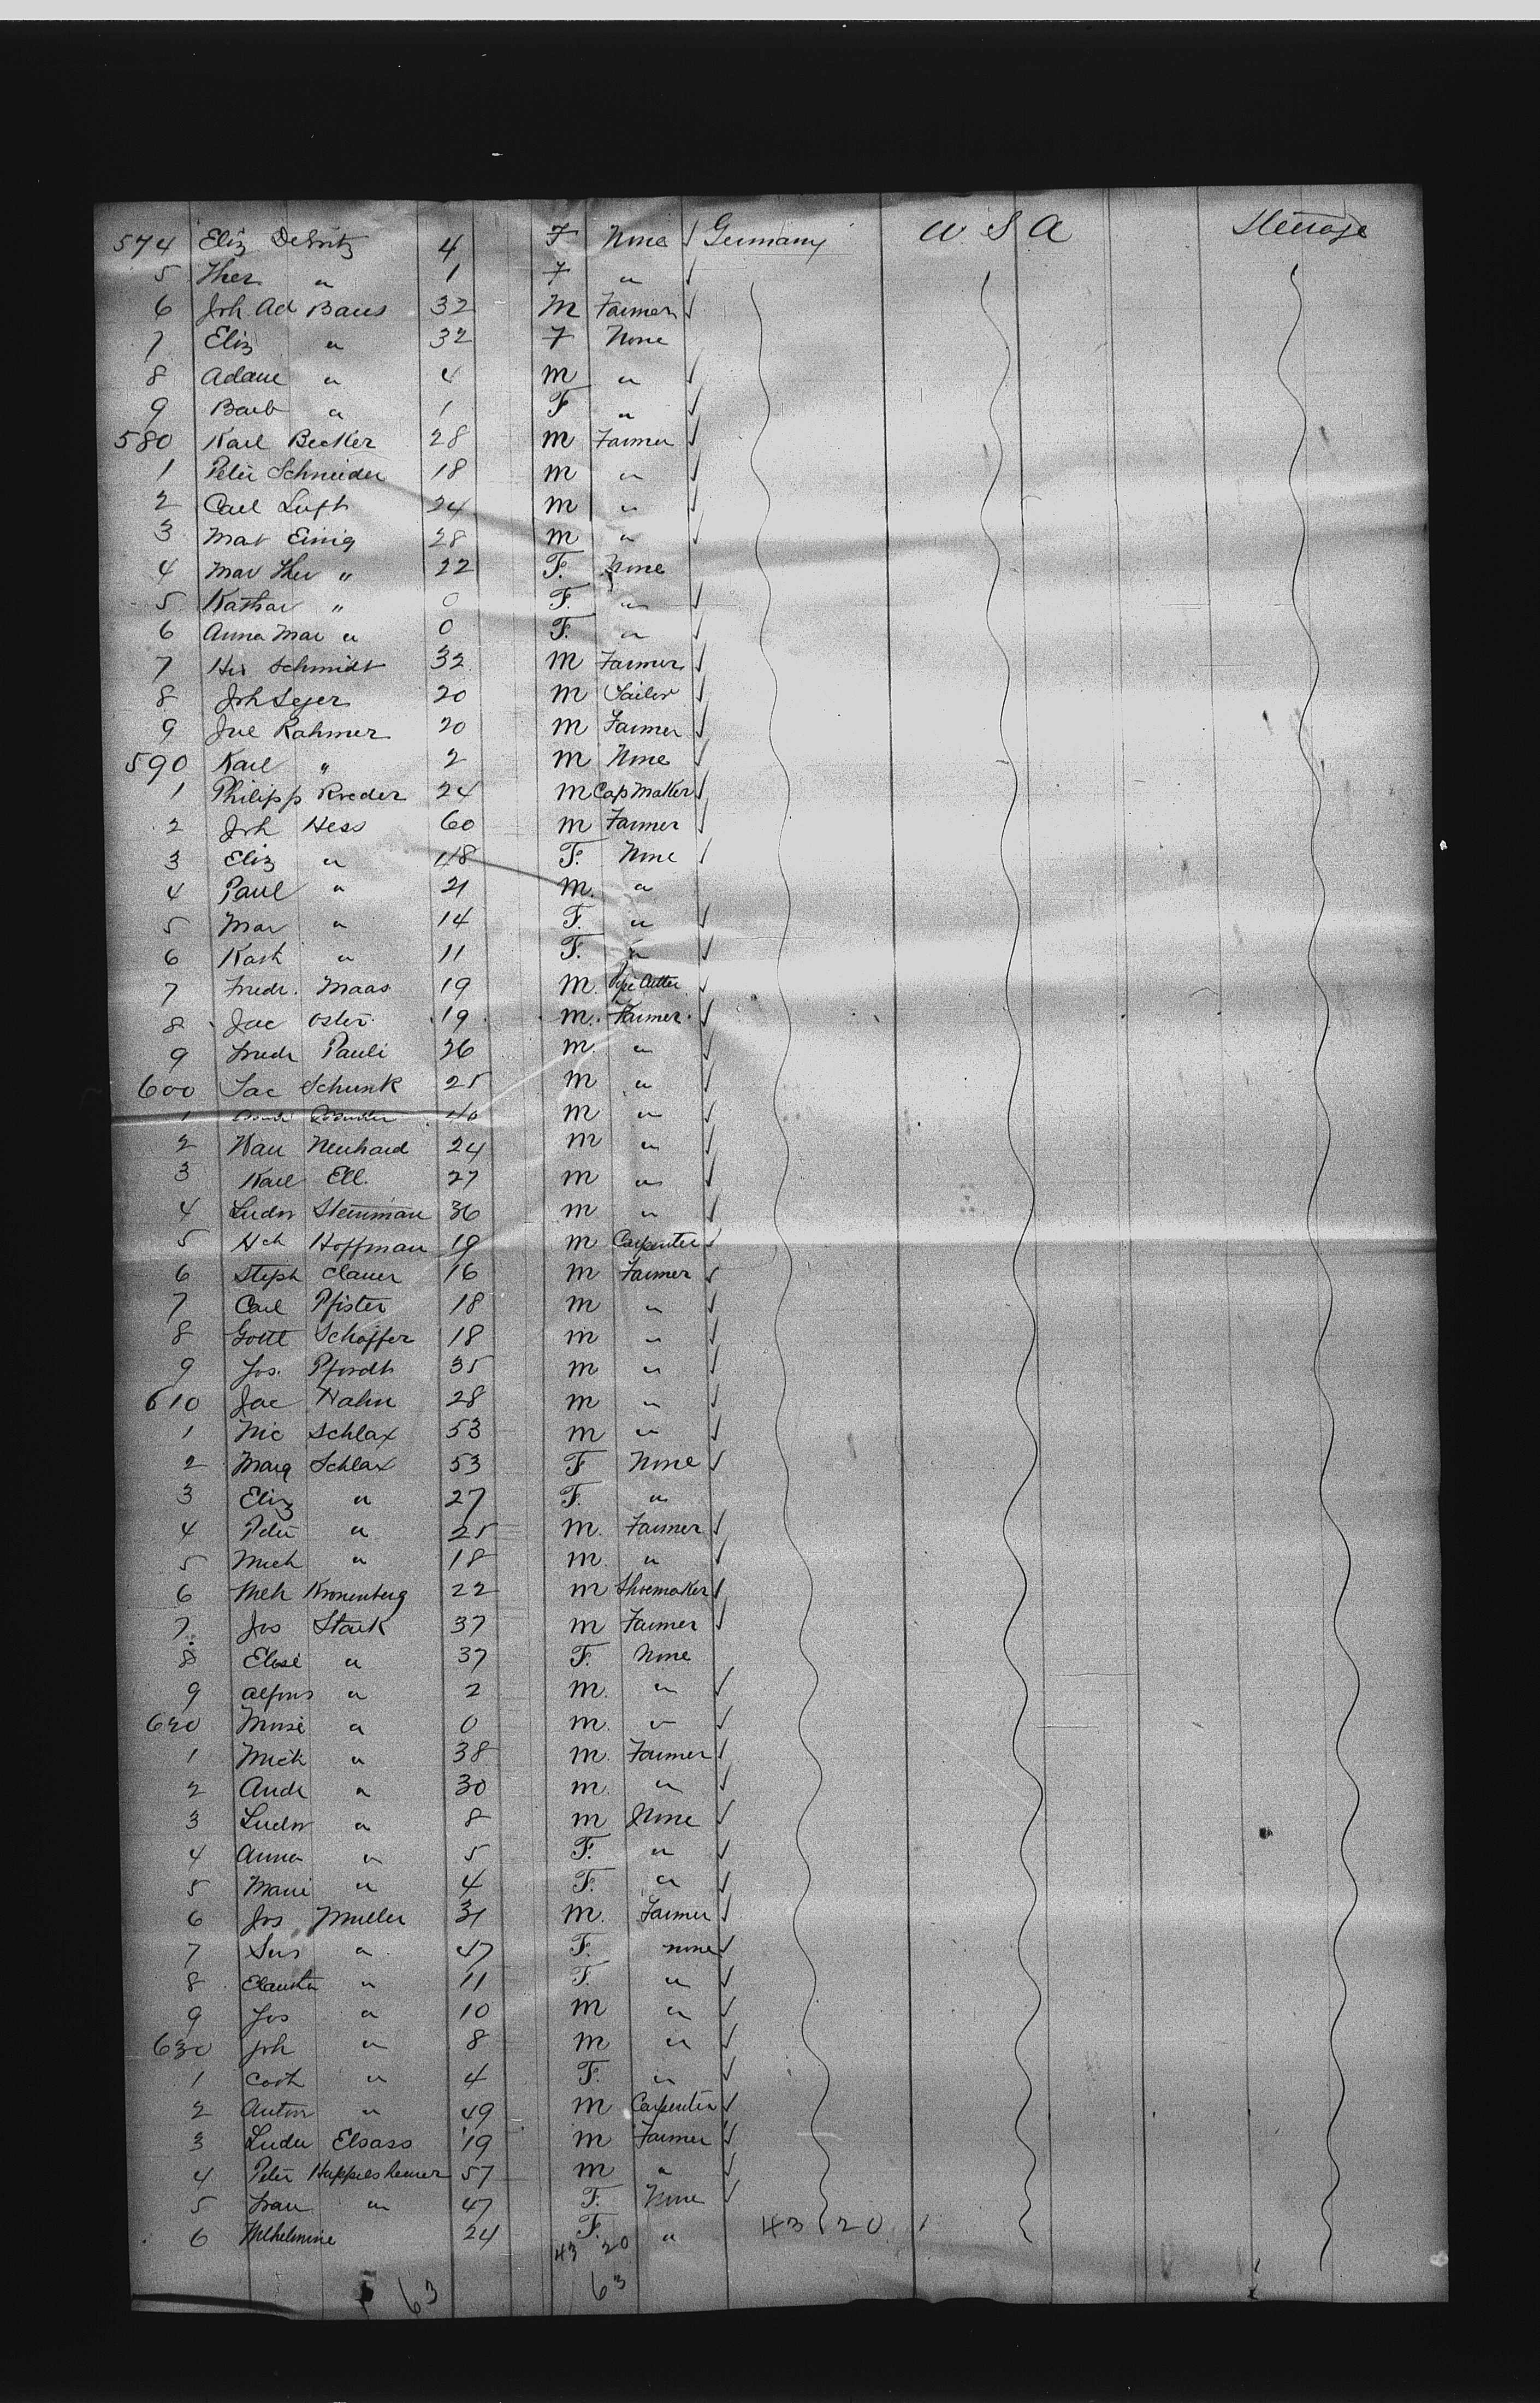 574 Eliz 4 F None √ Germany U S A Steerage
5 Ther " 1 F " √
6 Joh Ad Baus 32 M Farmer √
7 Eliz " 32 F None
8 Adam " 4 M " √
9 Barb " 1 F " √
580 Karl Becker 28 M Farmer √
1 Peter Schneider 18 M " √
2 Carl Luft 24 M " √
3 Mat Einig 28 M " √
4 Mar Ther " 22 F. None
5 Kathar " 0 F. " √
6 Anna Mar " 0 F. " √
7 Schmidt 32 M Farmer √
8 Joh 20 M √
9 Jul Rahmer 20 M Farmer √
590 Karl " 2 M None √
1 Philipp Roeder 24 M Cap Maker √
2 Joh Hess 60 M Farmer √
3 Eliz " F. None √
4 Paul " 21 M. "
5 Mar " 14 F. " √
6 Kath " 11 F. " √
7 Friedr. Maas 19 M. √
8 Jac Oster 19 M. Farmer √
9 Friedr Pauli 26 M. " √
600 Jac Schunk 25 M " √
1 40 M " √
2 Neuhard 24 M " √
3 Karl Ell. 27 M " √
4 Ludw Steinman 36 M " √
5 Hch Hoffman 19 M Carpenter √
6 Steph Clauer 16 M Farmer √
7 Carl Pfister 18 M " √
8 Gottl Schaffer 18 M " √
9 Jos. Pfordt 35 M " √
610 Jac Hahn 28 M " √
1 Nic Schlax 53 M " √
2 Marg Schlax 53 F None √
3 Eliz " 27 F. "
4 Peter " 25 M. Farmer √
5 Mich " 18 M. " √
6 Kronenberg 22 M Shoemaker √
7 Jos Stark 37 M Farmer √
8 Elise " 37 F. None
9 Alfons " 2 M. " √
620 " 0 M. " √
1 Mich " 38 M. Farmer √
2 Andr " 30 M. " √
3 Ludw " 8 M None √
4 Anna " 5 F. " √
5 Marie " 4 F. " √
6 Jos Muller 31 M. Farmer √
7 Sus " 47 F. none √
8 " 11 F. " √
9 Jos " 10 M " √
630 Joh " 8 M " √
1 Cath " 4 F. " √
2 Anton " 49 M Carpenter √
3 Ludw Elsass 19 M Farmer √
4 Peter 57 M " √
5 " 47 F. None √
6 Wilhelmine 24 F. " 43 20 1
43 20
63 63